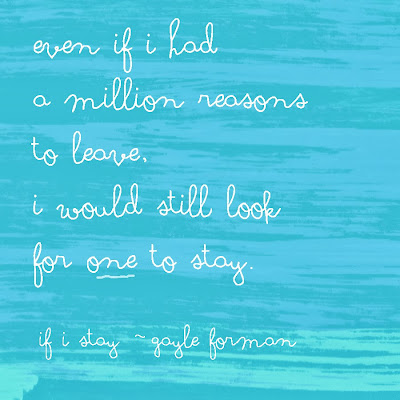 even if i had
a million reasons
to leave,
i would still look
for one to stay.
if i stay ~gayle forman